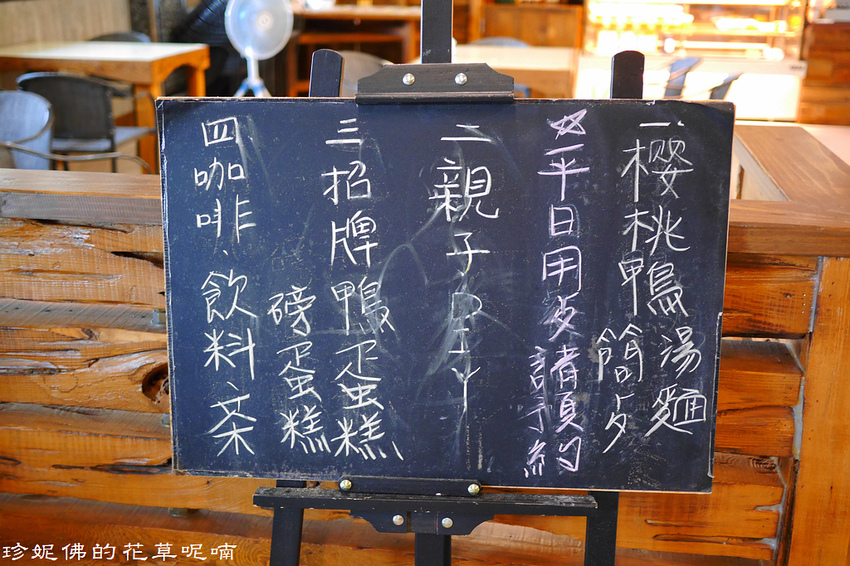 一、櫻桃鴨湯麵
簡歺
☆平日用歺請預約
二親子DIY
三招牌鴨蛋糕、
磅蛋糕
四咖啡、飲料、茶
珍妮佛的花草呢喃